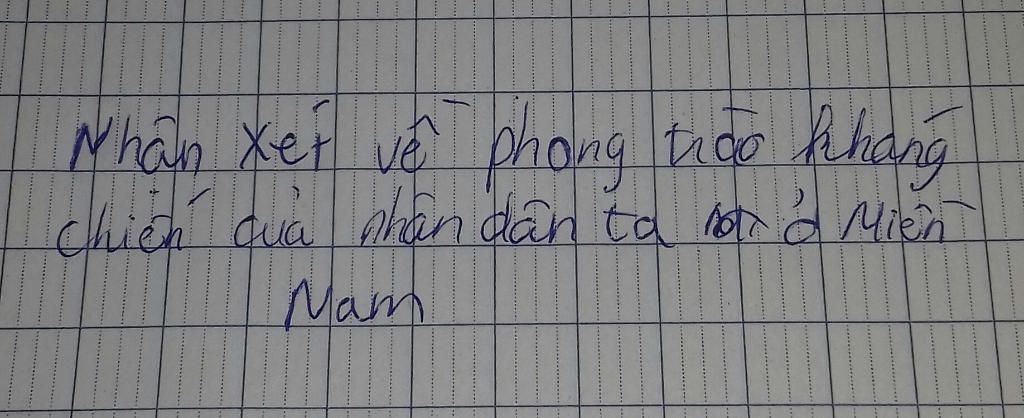 Nhận xét về phong trào kháng
chiến quả nhân dân ta ở Miền
Nam